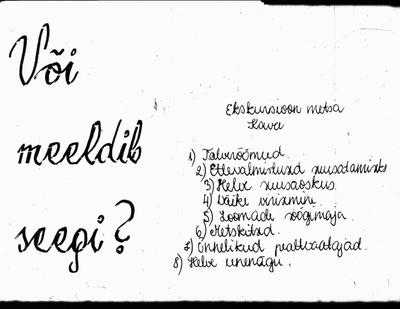 Või
meeldib
seegi?
Ekskursioon metsa
Kava
1) Talverõõmud.
2) Ettevalmistused suusatamiseks
3) Helve suusaoskus.
4) Väike
5) Loomade söögimaja.
6) Metskitsed.
7) Õnnelikud pealtvaatajad.
8) Helve unenägu.